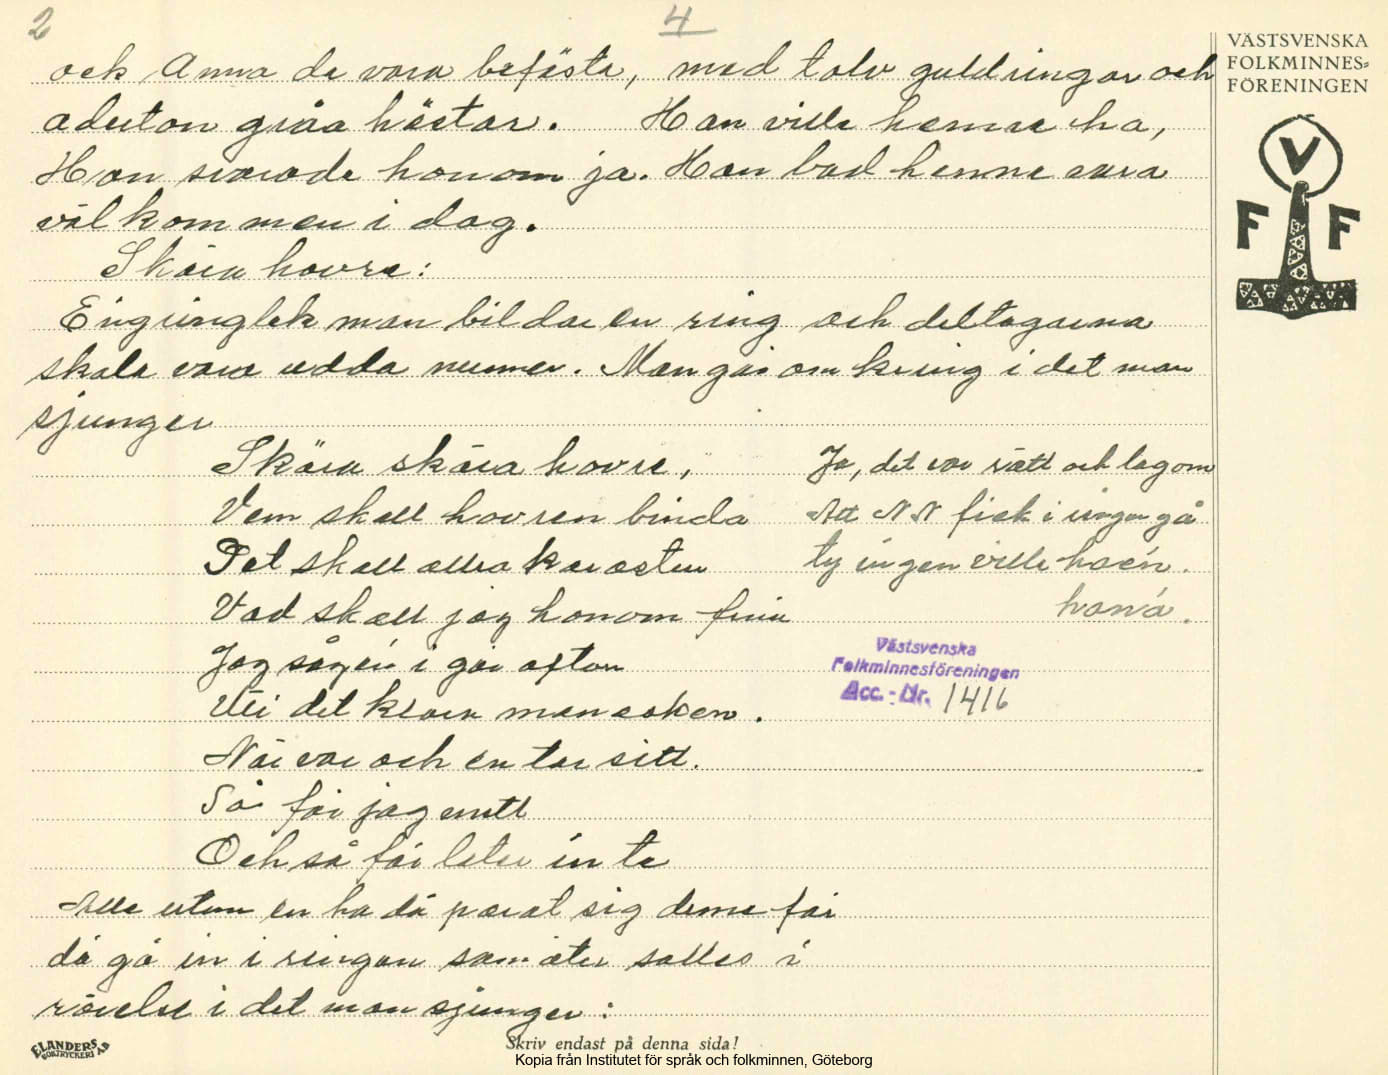 2
4
VÄSTSVENSKA
FOLKMINNES-
FÖRENINGEN
V
F F
och Anna de vara befästa, med tolv guldringar och
aderton gråa hästar. Han ville henne ha,
Hon svarade honom ja. Han bad henne vara
välkommen i dag.
Skära havre:
En ringlek man bildar en ring och deltagarna
skola vara udda numer. Man går omkring i det man
sjunger
Skära skära havre,
Vem skall havren binda
Det skall allra kärasten
Vad skall jag honom finna
Jag såg'en i går afton
Uti det klara månesken.
När var och en tar sitt.
Så får jag mitt
Och så får låta inte
Ja, det var rätt och lagom
Att N N fick i ringen gå
ty ingen ville ha'en.
han'a.
Västsvenska
Folkminnesföreningen
Acc. - Nr. 1416
Alla utom en ha då parat sig denne får
då gå in i ringen som åter sattes i
rörelse i det man sjunger:
ELANDERS
BOKTRYCKERI A.B
Skriv endast på denna sida!
Kopia från Institutet för språk och folkminnen, Göteborg